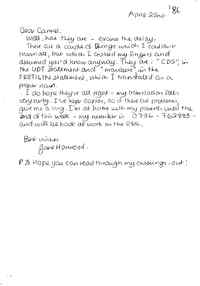 '86
April 22nd
Dear Carmel,
Well, here they are - excuse the delay.
There are a couple of things which I couldn't
translate, but which I crossed my fingers and
assumed you'd know anyway. They are: "CDS" in
the UDT statement and in the
PRETILTA statement, which I translated as a
proper noun.
I do hope they're all right - my translation
. I've kept copies, so if there are problems,
give me a ring. I'm at home with my parents until the
end of this week - my number is 0736 - 762833 -
and will be back at work on the 28th.
Best wishes,
Jane Harwood.
P.S Hope you can read through my crossings-out!